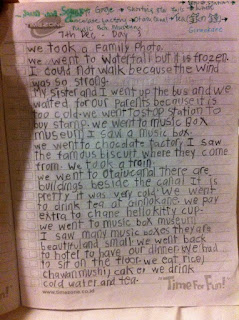 7th Dec, - Day 8
we took a family photo.
we went to waterfall but it is frozen.
I could not walk because the wind
was so strong.
My sister and I went up the bus and we
waited for our parents because it is
too cold. we went to stop station to
buy stamp. we went to music box
museum I saw a music box.
we went to chocolate factory I saw
the famous biscuit where they come
from. we took a train.
we went to otaru canal there are
buildings beside the canal. It is
pretty it was very cold. we went
to drink tea at airplane. we pay
extra to chane hellokitty cup.
we went to music box museum
I saw many music boxes they are
beautiful and small. we went back
to hotel to have our dinner. we had
to sit on the floor. we eat rice,
chawanmushi, cake. we drink
cold water and tea.
Time For Fun!